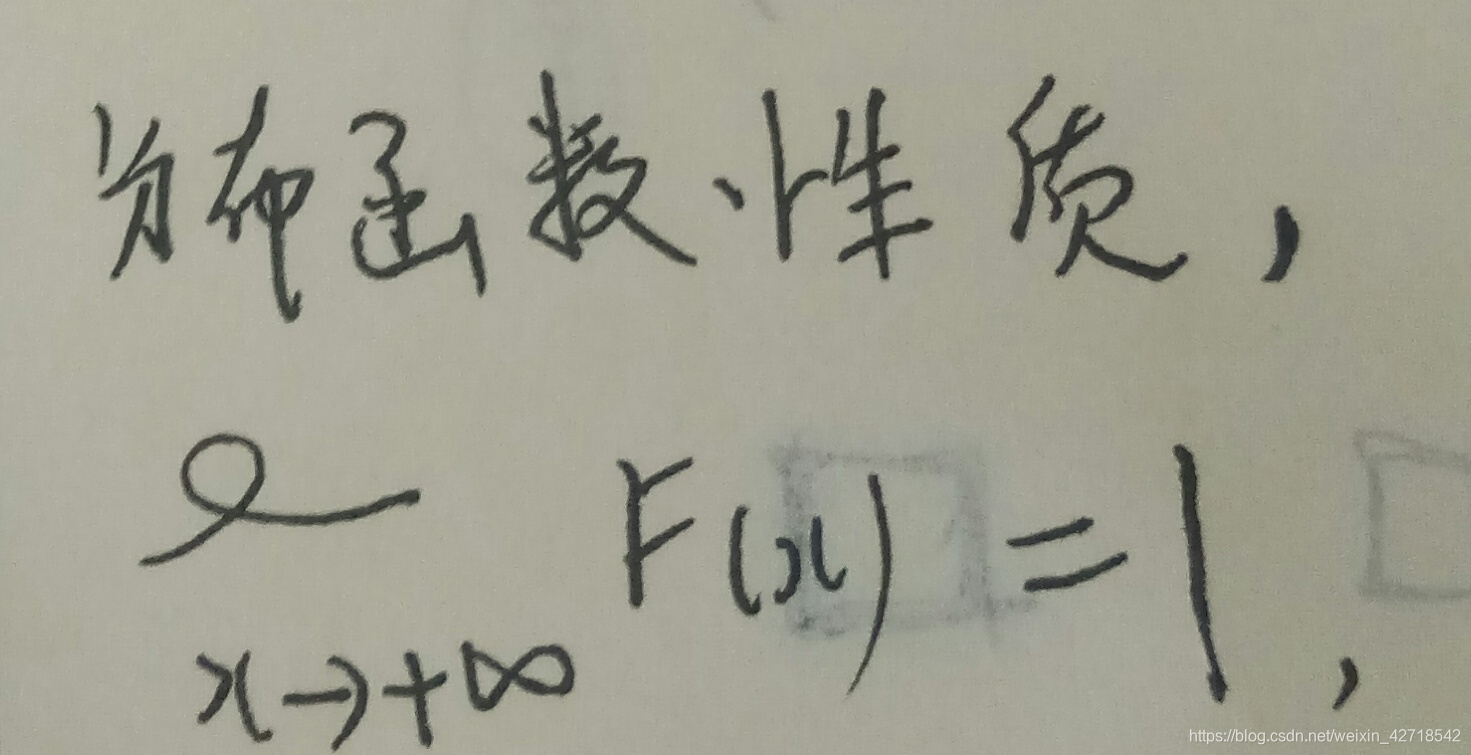 分布函数性质,
lim F(x) = 1,
x→+∞
https://blog.csdn.net/weixin_42718542